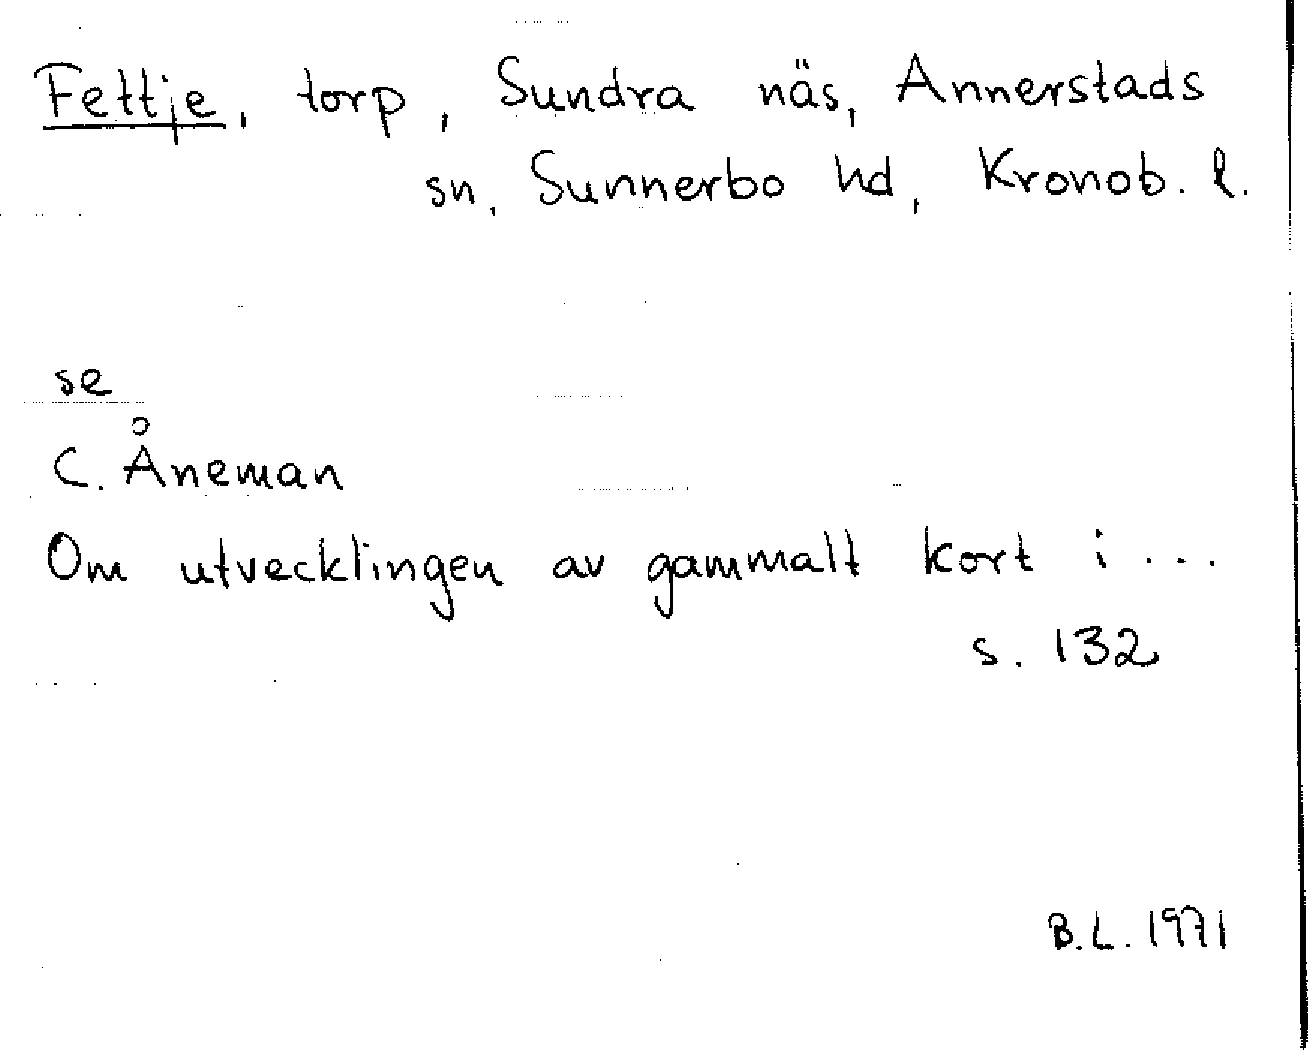 Fettje, torp, Sundra näs, Annerstads
sn, Sunnerbo hd, Kronob. l.
se
C. Åneman
Om utvecklingen av gammalt kort i ...
s. 132
B.L. 1971